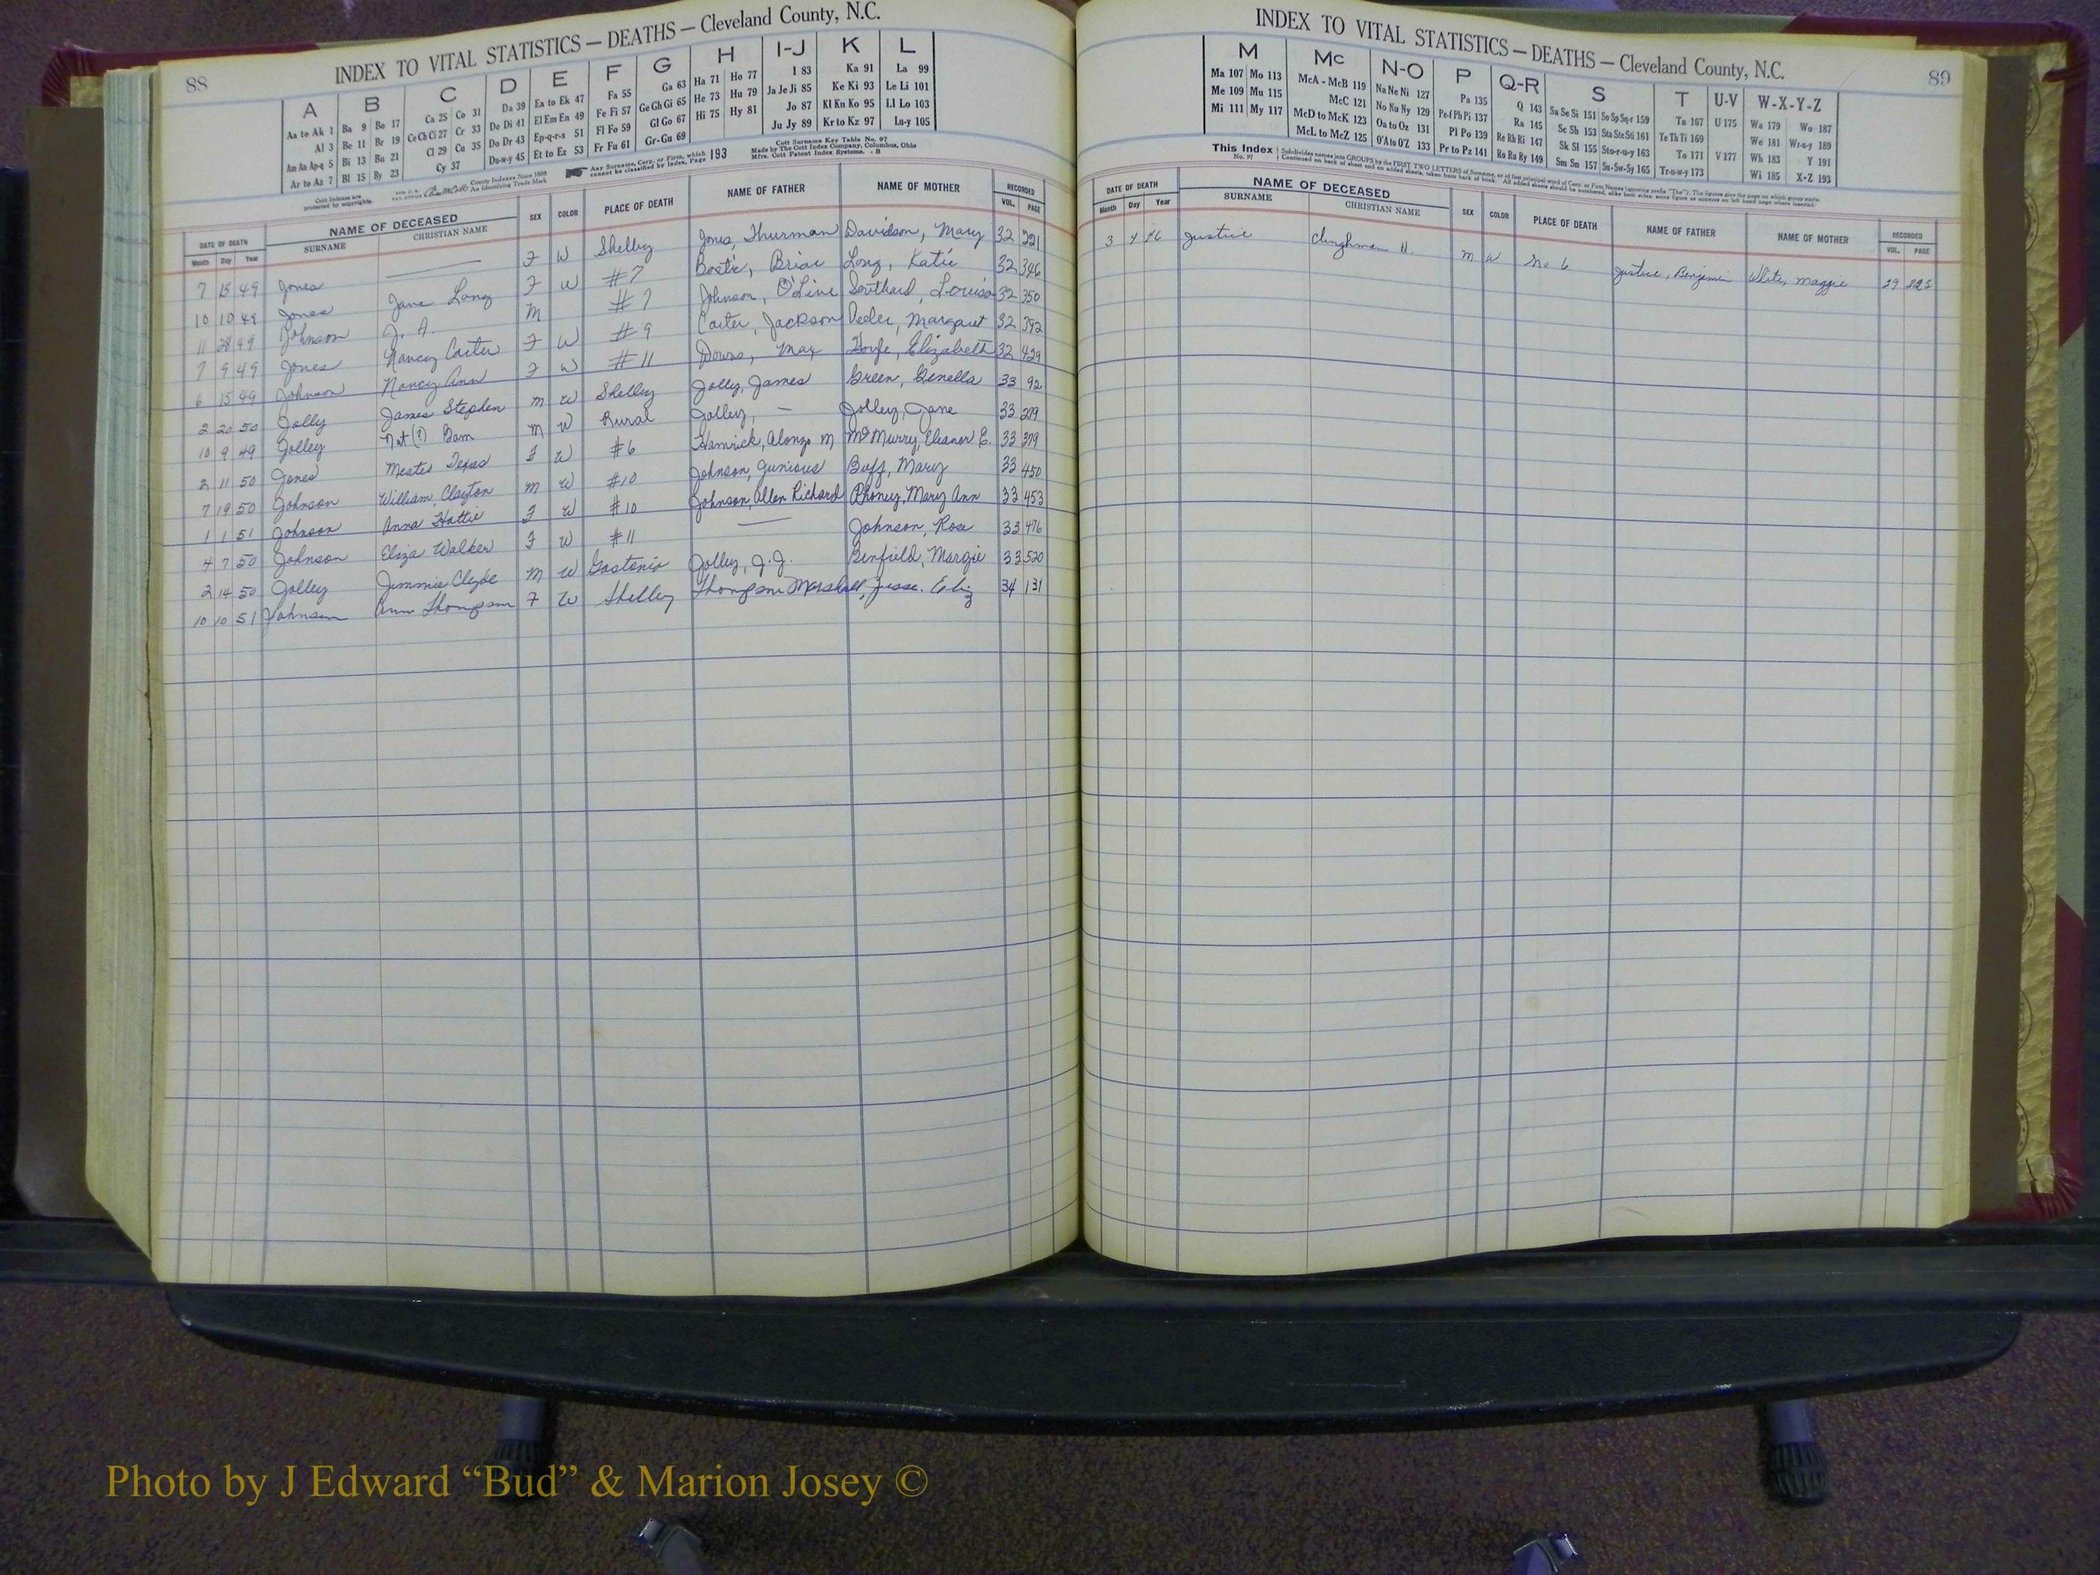 88
INDEX TO VITAL STATISTICS — DEATHS — Cleveland County, N.C.
A B C D E F G H I-J K L
Aa to Ak 1 Ba 9 Bo 17 Ca 25 Co 31 Da 39 Ea to Ek 47 Fa 55 Ga 63 Ha 71 Ho 77 I 83 Ka 91 La 99
Al 3 Be 11 Br 19 Ce Ch Ci 27 Cr 33 De Di 41 El Em En 49 Fe Fi 57 Ge Gh Gi 65 He 73 Hu 79 Ja Je Ji 85 Ke Ki 93 Le Li 101
Am An Ap-q 5 Bi 13 Bu 21 Cl 29 Cu 35 Do Dr 43 Ep-q-r-s 51 Fl Fo 59 Gl Go 67 Hi 75 Hy 81 Jo 87 Kl Kn Ko 95 Ll Lo 103
Ar to Az 7 Bl 15 By 23 Cy 37 Du-w-y 45 Et to Ez 53 Fr Fu 61 Gr-Gu 69 Ju Jy 89 Kr to Kz 97 Lu-y 105
Cott Indexes are protected by copyrights.
County Indexes Since 1888
An Identifying Trade Mark
Any Surname, Corp. or Firm, which cannot be classified by Index, Page 193
Cott Surname Key Table No. 97
Made by The Cott Index Company, Columbus, Ohio
Mfrs. Cott Patent Index Systems. - B
DATE OF DEATH NAME OF DECEASED SEX COLOR PLACE OF DEATH NAME OF FATHER NAME OF MOTHER RECORDED
Month Day Year SURNAME CHRISTIAN NAME VOL. PAGE
7 15 49 Jones — F W Shelby Jones, Thurman Davidson, Mary 32 221
10 10 49 Jones Jane Long F W #7 Long, Katie 32 346
11 28 49 Johnson J. A. M #7 Johnson, O'Live Southard, Louisa 32 350
7 9 49 Jones Nancy Carter F W #9 Carter, Jackson Peeler, Margaret 32 392
6 15 49 Johnson Nancy Ann F W #11 Downs, May Elizabeth 32 429
2 20 50 Jolly James Stephen M W Shelby Jolley, James Green, Genella 33 92
10 9 49 Jolley Nat (?) Bam M W Rural Jolley, — Jolley, Jane 33 279
2 11 50 Jones Texas F W #6 Hamrick, Alonzo M. McMurry, Eleanor E. 33 379
7 19 50 Johnson William Clayton M W #10 Johnson, Junious Buff, Mary 33 450
1 1 51 Johnson Anna Hattie F W #10 Johnson, Allen Richard Rhoney, Mary Ann 33 453
4 7 50 Johnson Eliza Walker F W #11 — Johnson, Rose 33 476
2 14 50 Jolley Jimmie Clyde M W Gastonia Jolley, J. J. Benfield, Margie 33 520
10 10 51 Johnson Ann Thompson F W Shelby Thompson Marshall, Jesse. Eliz 34 131
INDEX TO VITAL STATISTICS — DEATHS — Cleveland County, N.C.
89
M Mc N-O P Q-R S T U-V W-X-Y-Z
Ma 107 Mo 113 McA - McB 119 Na Ne Ni 127 Pa 135 Q 143 Sa Se Si 151 So Sp Sq-r 159 Ta 167 U 175 Wa 179 Wo 187
Me 109 Mu 115 McC 121 No Nu Ny 129 Pe-f Ph Pi 137 Ra 145 Sc Sh 153 Sta Ste Sti 161 Te Th Ti 169 We 181 Wr-u-y 189
Mi 111 My 117 McD to McK 123 Oa to Oz 131 Pl Po 139 Re Rh Ri 147 Sk Sl 155 Sto-r-u-y 163 To 171 V 177 Wh 183 Y 191
McL to McZ 125 O'A to O'Z 133 Pr to Pz 141 Ro Ru Ry 149 Sm Sn 157 Su-Sw-Sy 165 Tr-u-w-y 173 Wi 185 X-Z 193
This Index No. 97
DATE OF DEATH NAME OF DECEASED SEX COLOR PLACE OF DEATH NAME OF FATHER NAME OF MOTHER RECORDED
Month Day Year SURNAME CHRISTIAN NAME VOL. PAGE
3 4 46 Justice M W No 6 Justice, Benjamin White, Maggie 29
Photo by J Edward “Bud” & Marion Josey ©